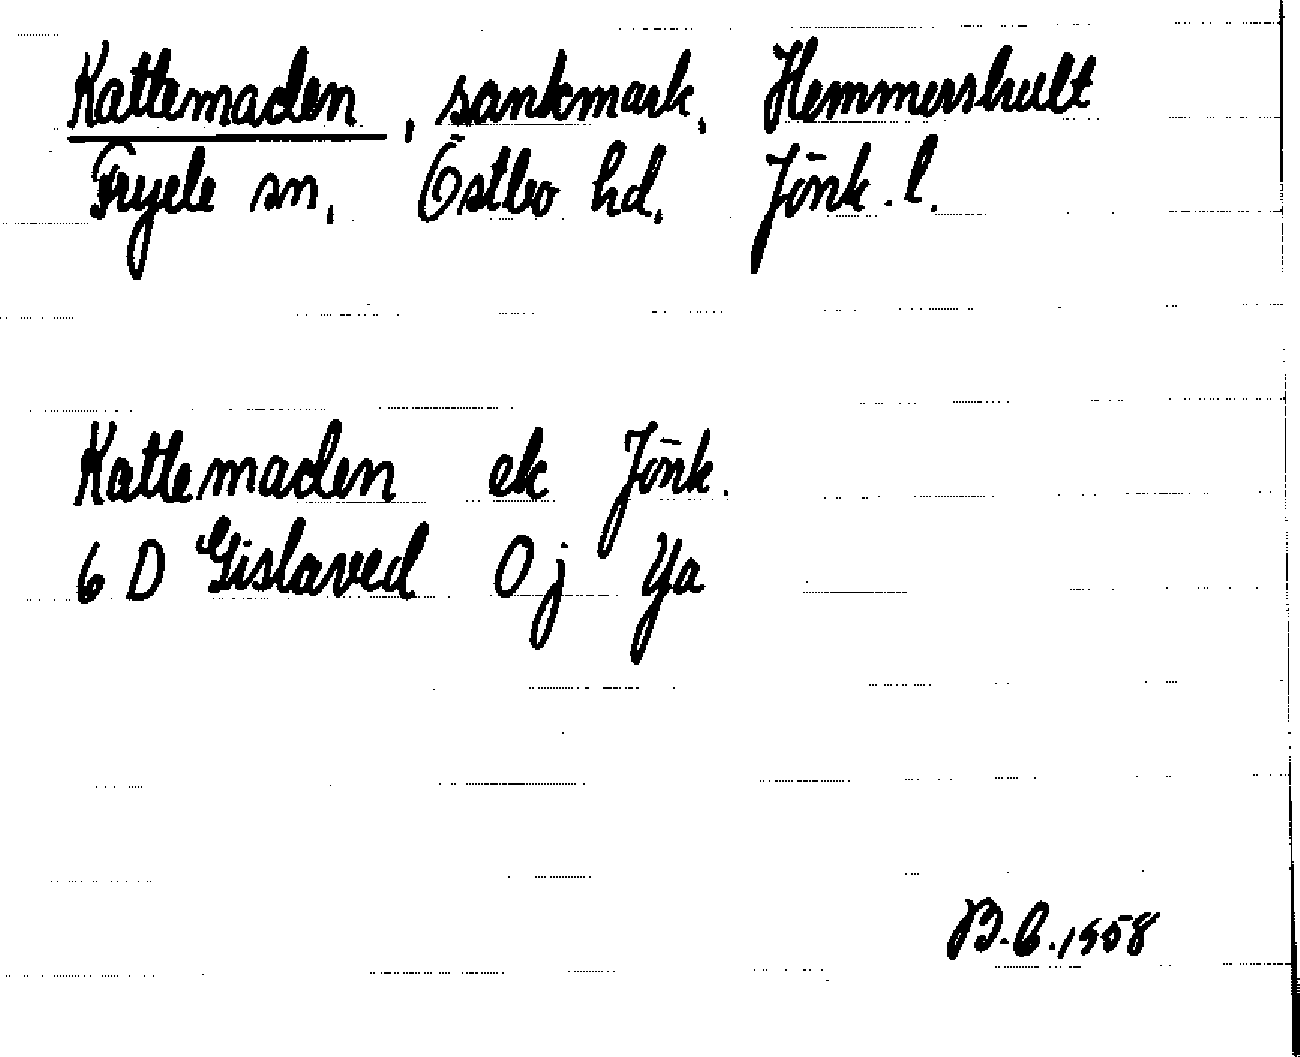 Kattemaden, sankmark, Hemmershult
Fryele sn, Östbo hd, Jönk. l.
Kattemaden ek Jönk.
6 D Gislaved 0j Ya
B.E. 1958